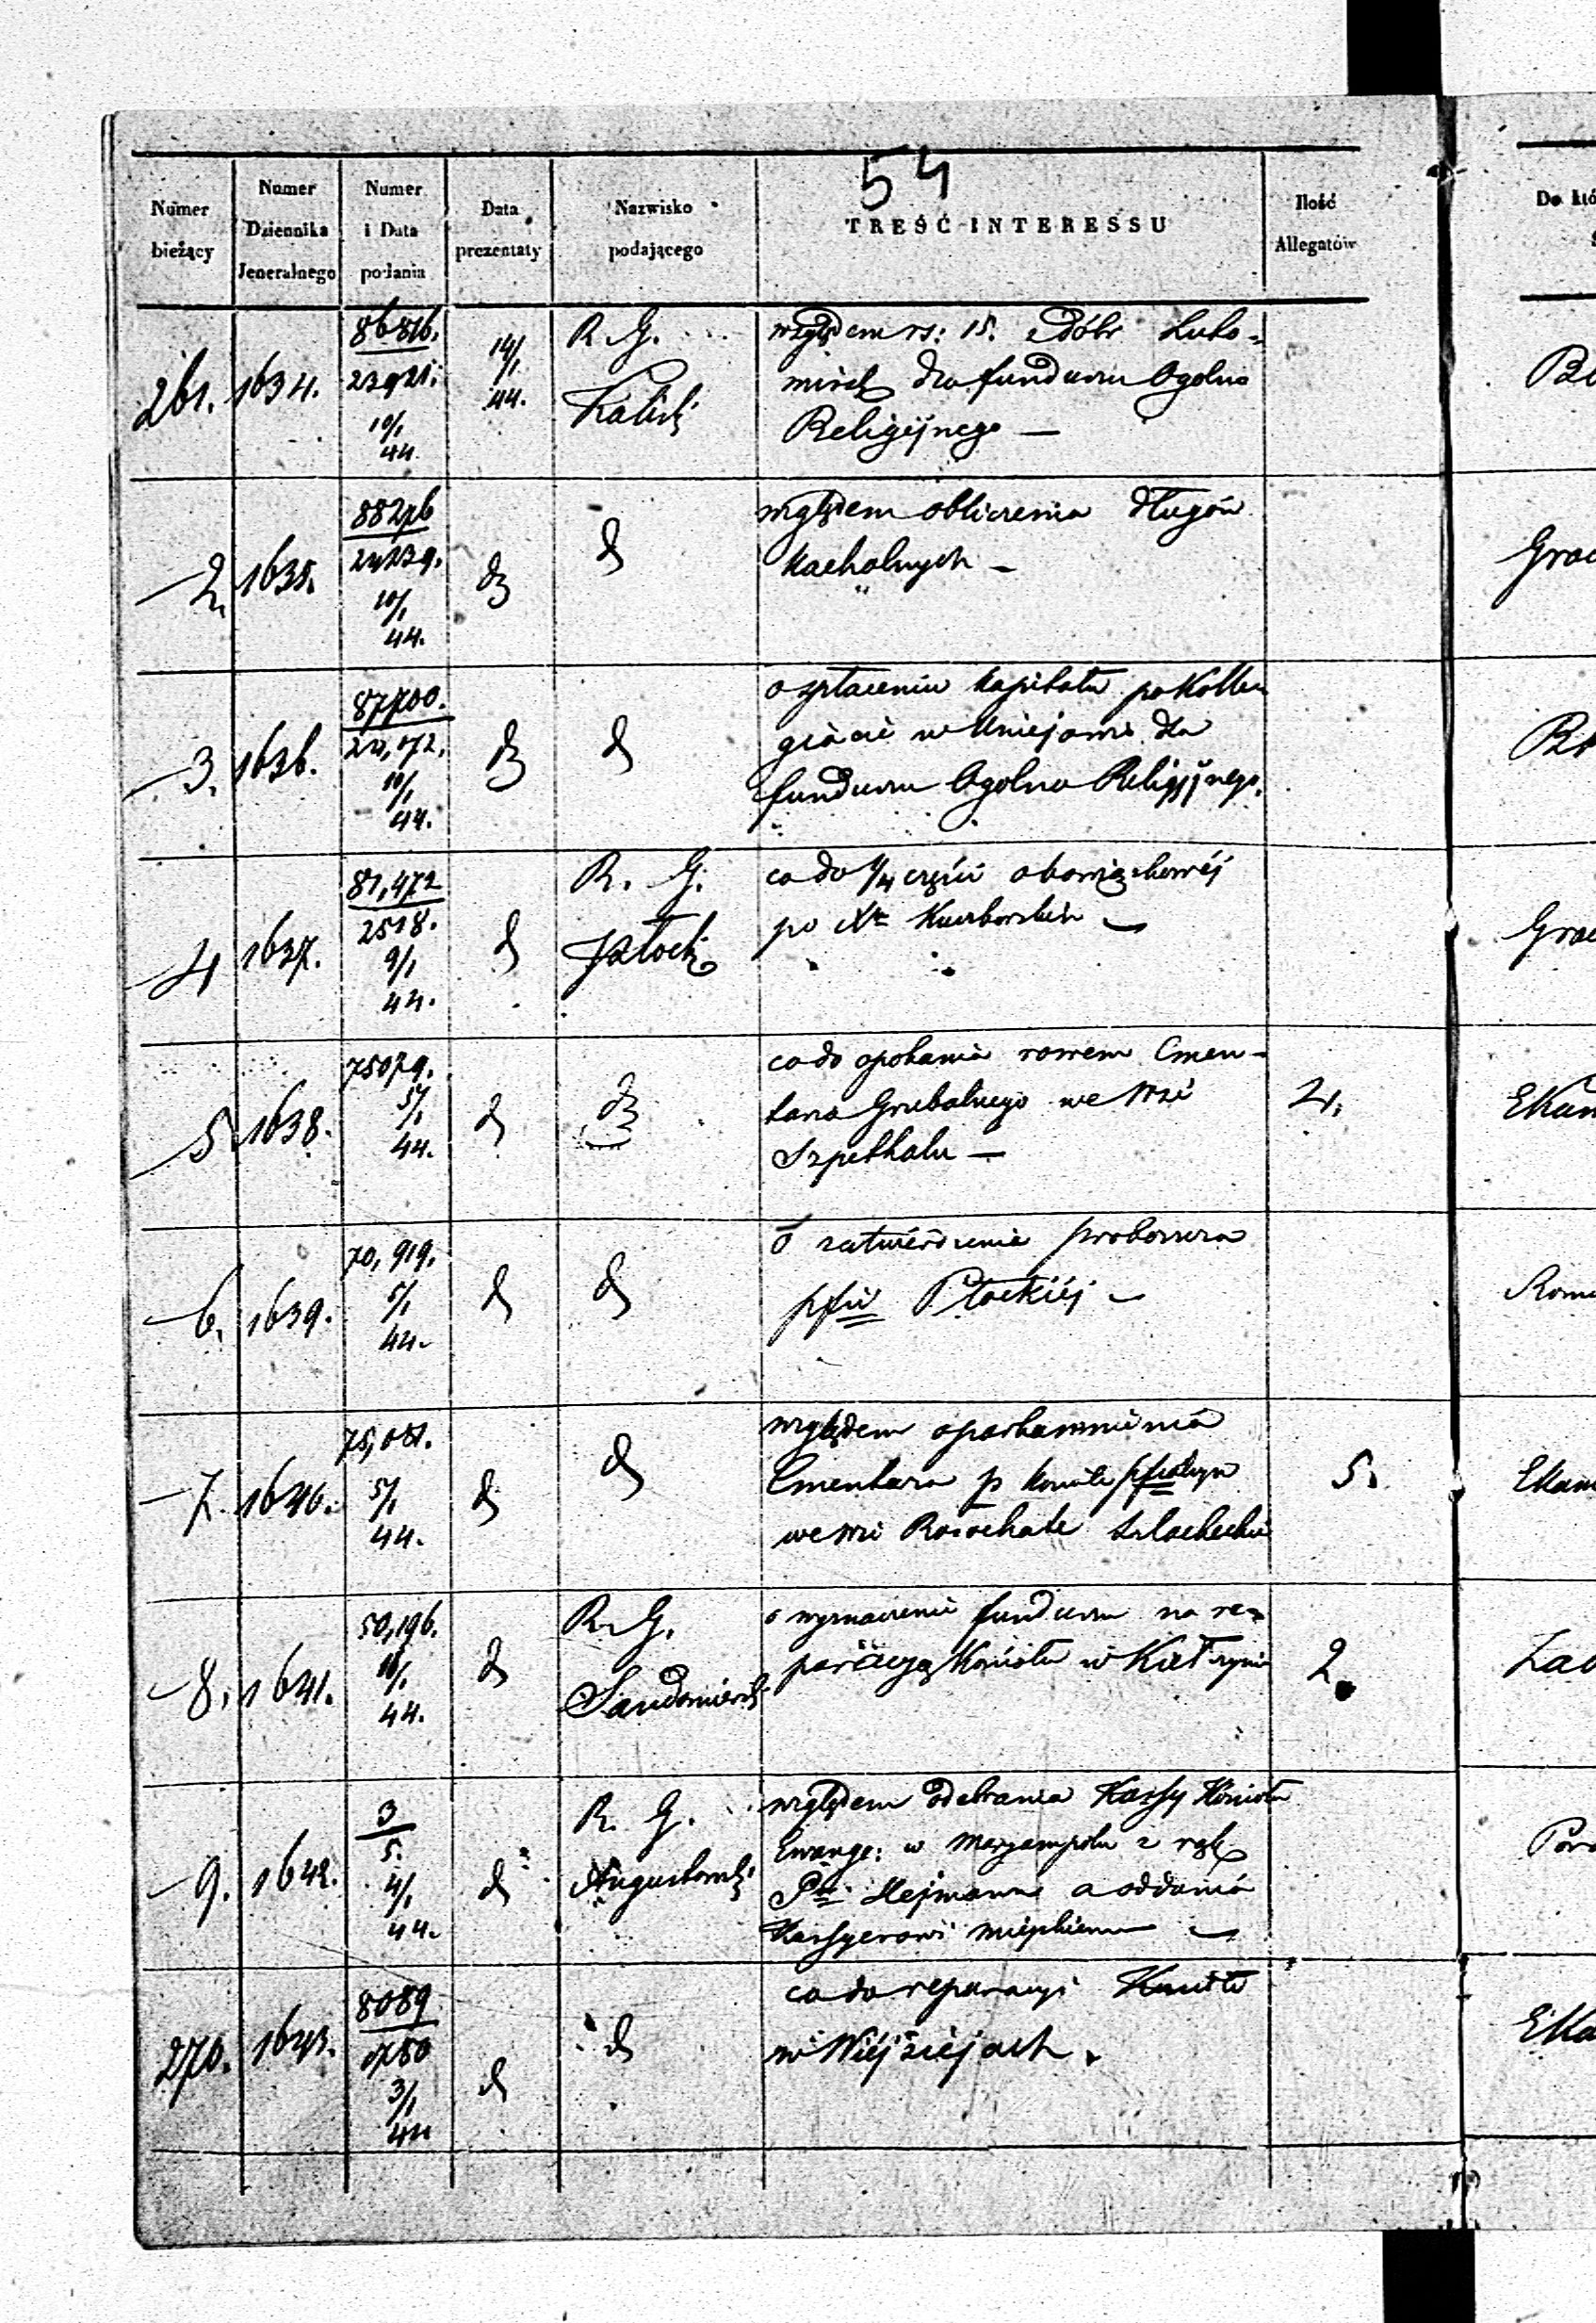 54
Numer bieżący
Numer Dziennika Jeneralnego
Numer i Data podania
Data prezentaty
Nazwisko podającego
TREŚĆ INTERESSU
Ilość Allegatów
261. 1634. 86816. 23921. 10/1 44. 14/1 44. R. G. Kaliski
względem rs: 15. z dóbr Luto-
mirsk dla funduszu Ogolno
Religijnego —
2. 1635. 10/1 44.
względem obliczenia długów
Kachalnych —
3. 1636. 87700. 24,172. 10/1 44.
o spłacenie kapitału po Kolle-
giacie w Uniejowie dla
funduszu Ogolno Religijnego.
4 1637. 81,472 2518. 9/1 44. R. G. Płocki
co do 1/4 części obowiązkowéj
po Xdu
5 1638. 75079. 5/1 44.
co do opokania rowem Cmen-
tarza Grzebalnego we Wsi
Szpetkalu — 4.
6. 1639. 70,919. 5/1 44.
o zatwierdzenie proboszcza
pfii Płockiéj —
7. 1640. 5/1 44.
względem oparkanienia
Cmentarza p Kościele pfialnym
we wsi Rosochate Szlacheckie 5.
8. 1641. 50,196. 10/1 44. R. G. Sandomierski
o wyznaczenie funduszu na re-
paracyą Kościoła w 2
9. 1642. 3 5. 4/1 44. R. G. Augustowski
względem odebrania Kassy Kościoła
Ewange: w Maryampolu z rąk
Pa Hejmanna a oddania
Kassyerowi miejskiemu —
270. 1643. 8089 3/1 44
co do reperacyi Kościoła
w Wiéjsiejach.